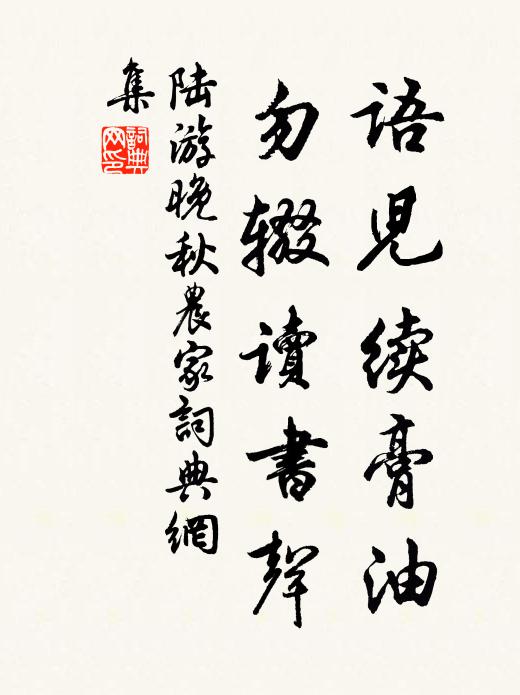 語児续膏油
勿辍讀書聲
陆游晚秋農家詞典網
集
詞典网印